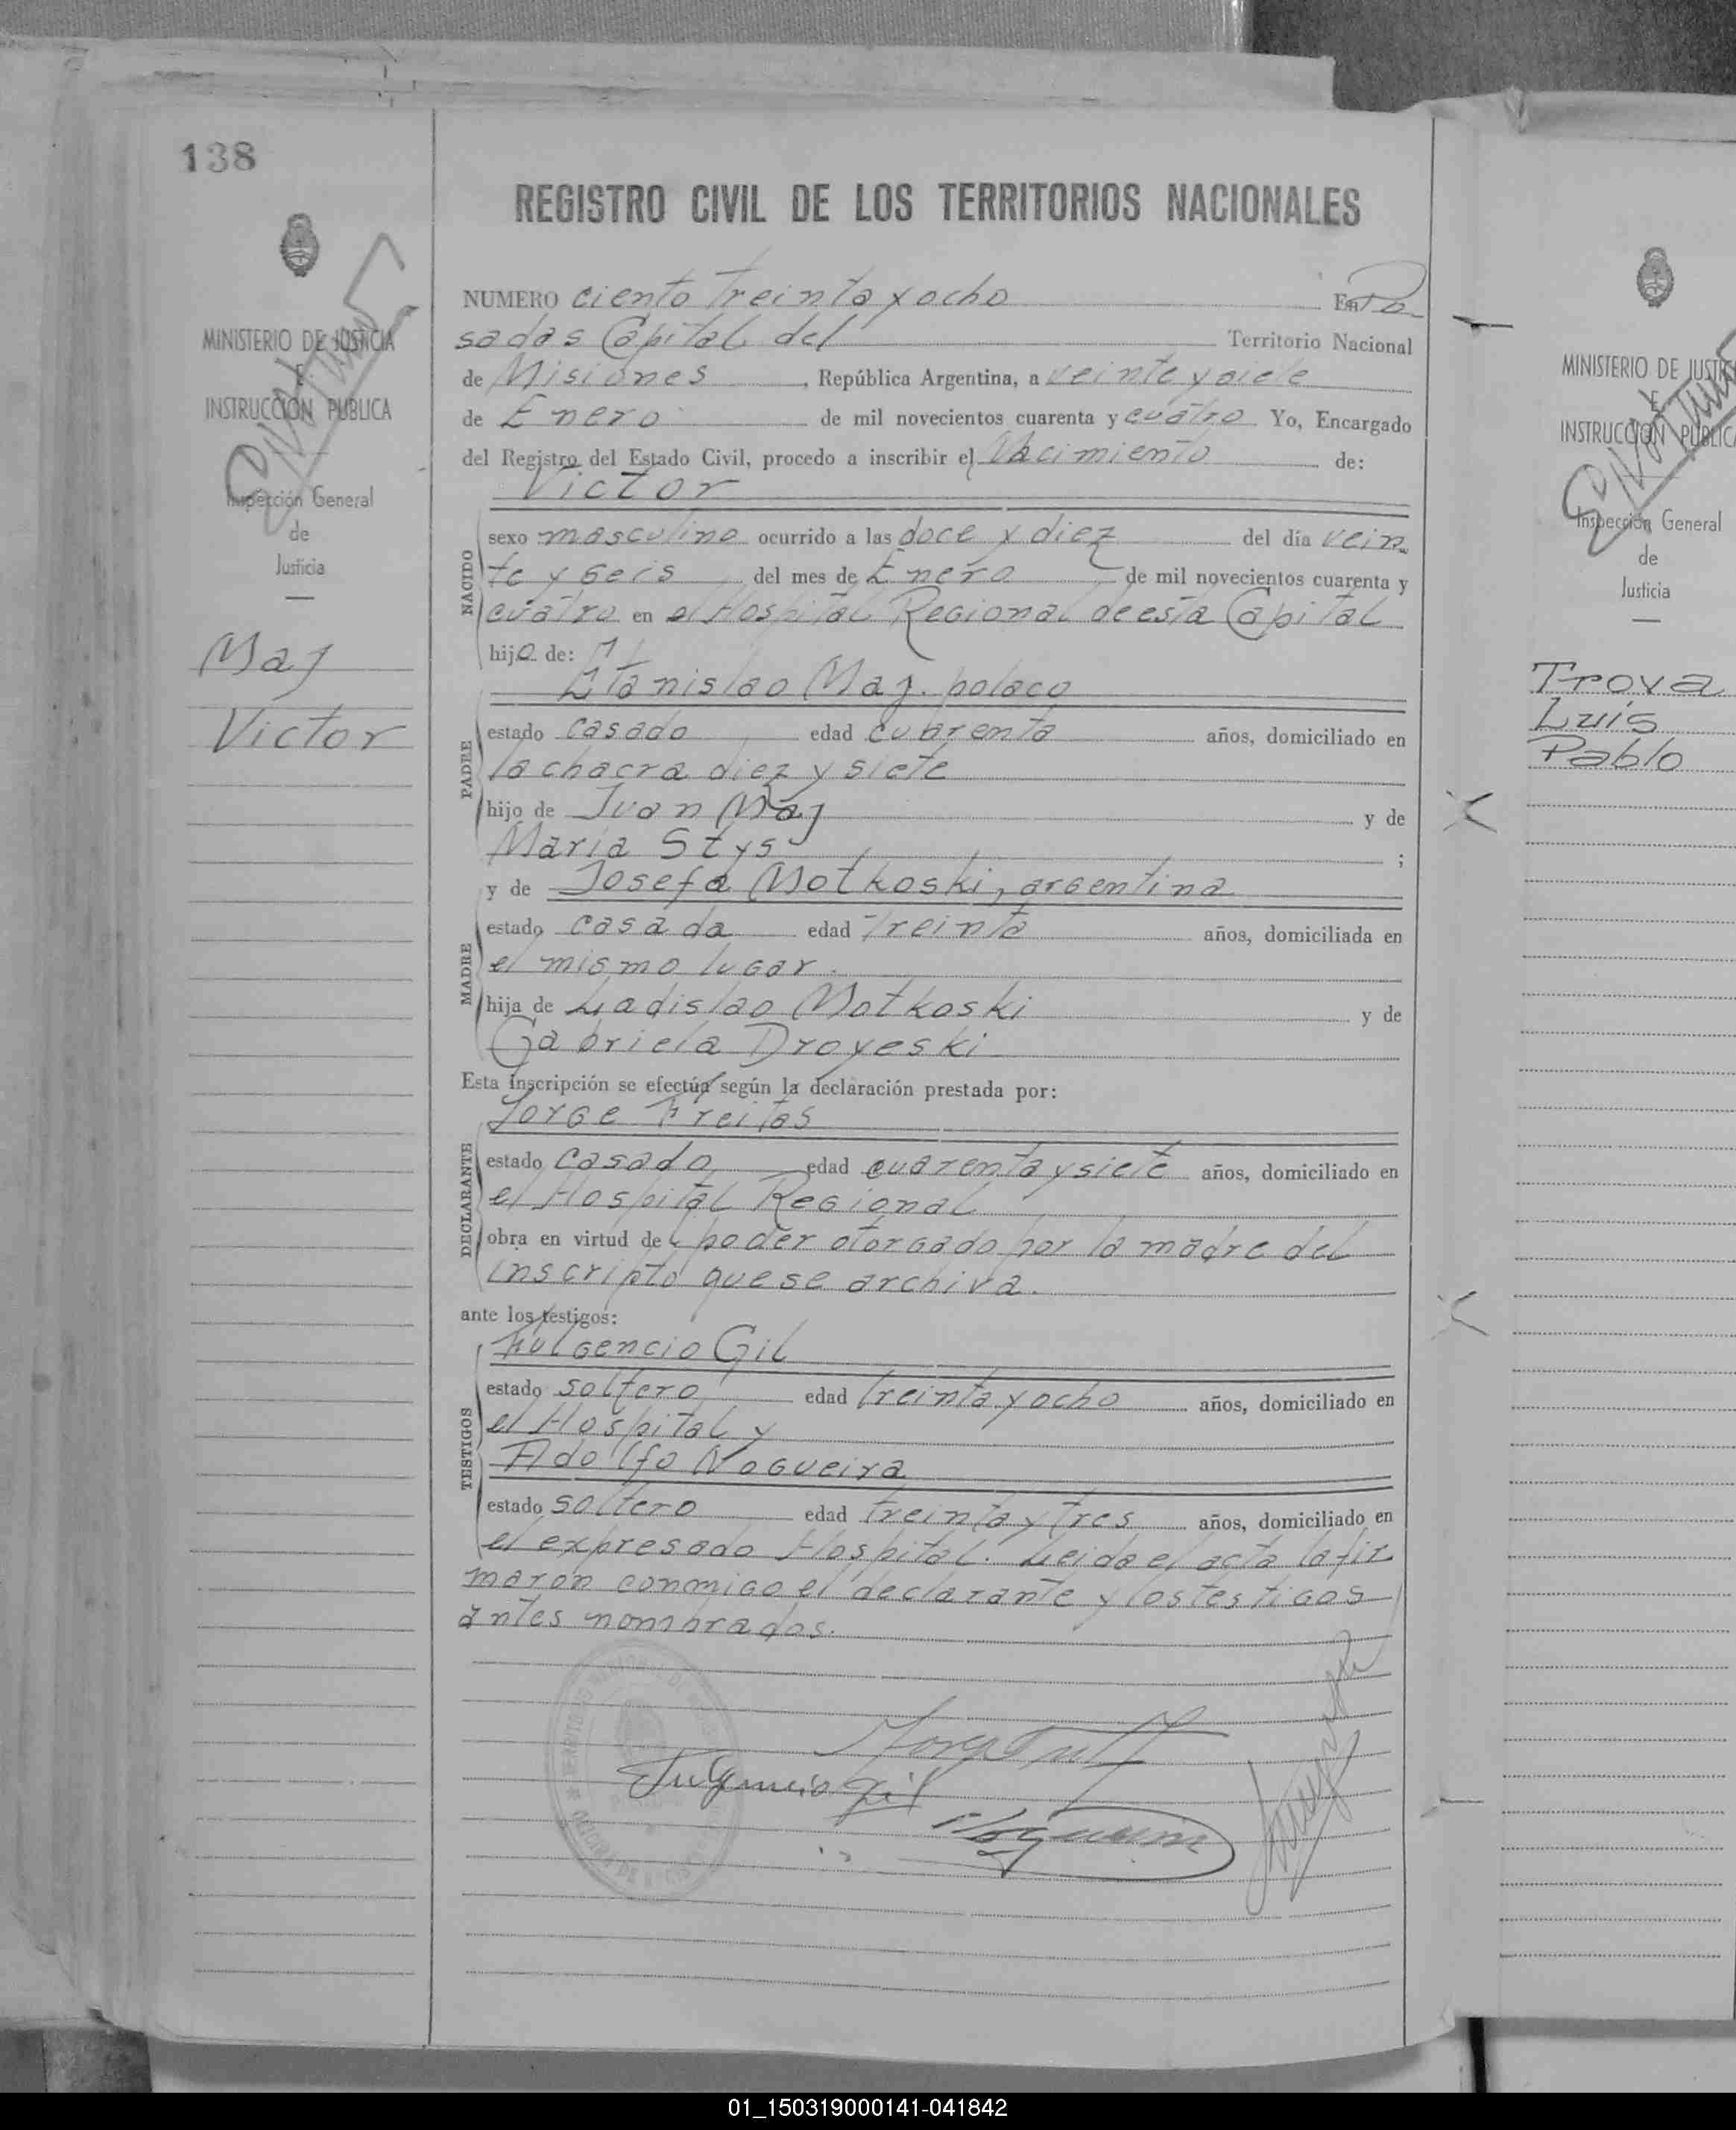 138
MINISTERIO DE JUSTICIA
E
INSTRUCCIÓN PUBLICA
Inspección General
de
Justicia
Maj
Victor
REGISTRO CIVIL DE LOS TERRITORIOS NACIONALES
NUMERO ciento treinta y ocho En Po
sadas Capital del Territorio Nacional
de Misiones, República Argentina, a veinte y siete
de Enero de mil novecientos cuarenta y cuatro Yo, Encargado
del Registro del Estado Civil, procedo a inscribir el Nacimiento de:
Victor
NACIDO
sexo masculino ocurrido a las doce y diez del día vein
te y seis del mes de Enero de mil novecientos cuarenta y
cuatro en el Hospital Regional de esta Capital
hijo de:
Estanislao Maj. polaco
PADRE
estado casado edad cuarenta años, domiciliado en
la chacra diez y siete
hijo de Juan Maj y de
Maria Stys ;
y de Josefa Motkoski, argentina
MADRE
estado casada edad treinta años, domiciliada en
el mismo lugar.
hija de Ladislao Motkoski y de
Gabriela Droyeski
Esta inscripción se efectúa según la declaración prestada por:
Jorge Freitas
DECLARANTE
estado casado edad cuarenta y siete años, domiciliado en
el Hospital Regional
obra en virtud del poder otorgado por la madre del
inscripto que se archiva.
ante los testigos:
Fulgencio Gil
TESTIGOS
estado soltero edad treinta y ocho años, domiciliado en
el Hospital y
Adolfo Nogueira
estado soltero edad treinta y tres años, domiciliado en
el expresado Hospital. Leida el acta la fir
maron conmigo el declarante y los testigos
antes nombrados.
Fulgencio Gil
Nogueira
MINISTERIO DE JUSTIC
E
INSTRUCCIÓN PUBLICA
Inspección General
de
Justicia
Troya
Luis
Pablo
01_150319000141-041842